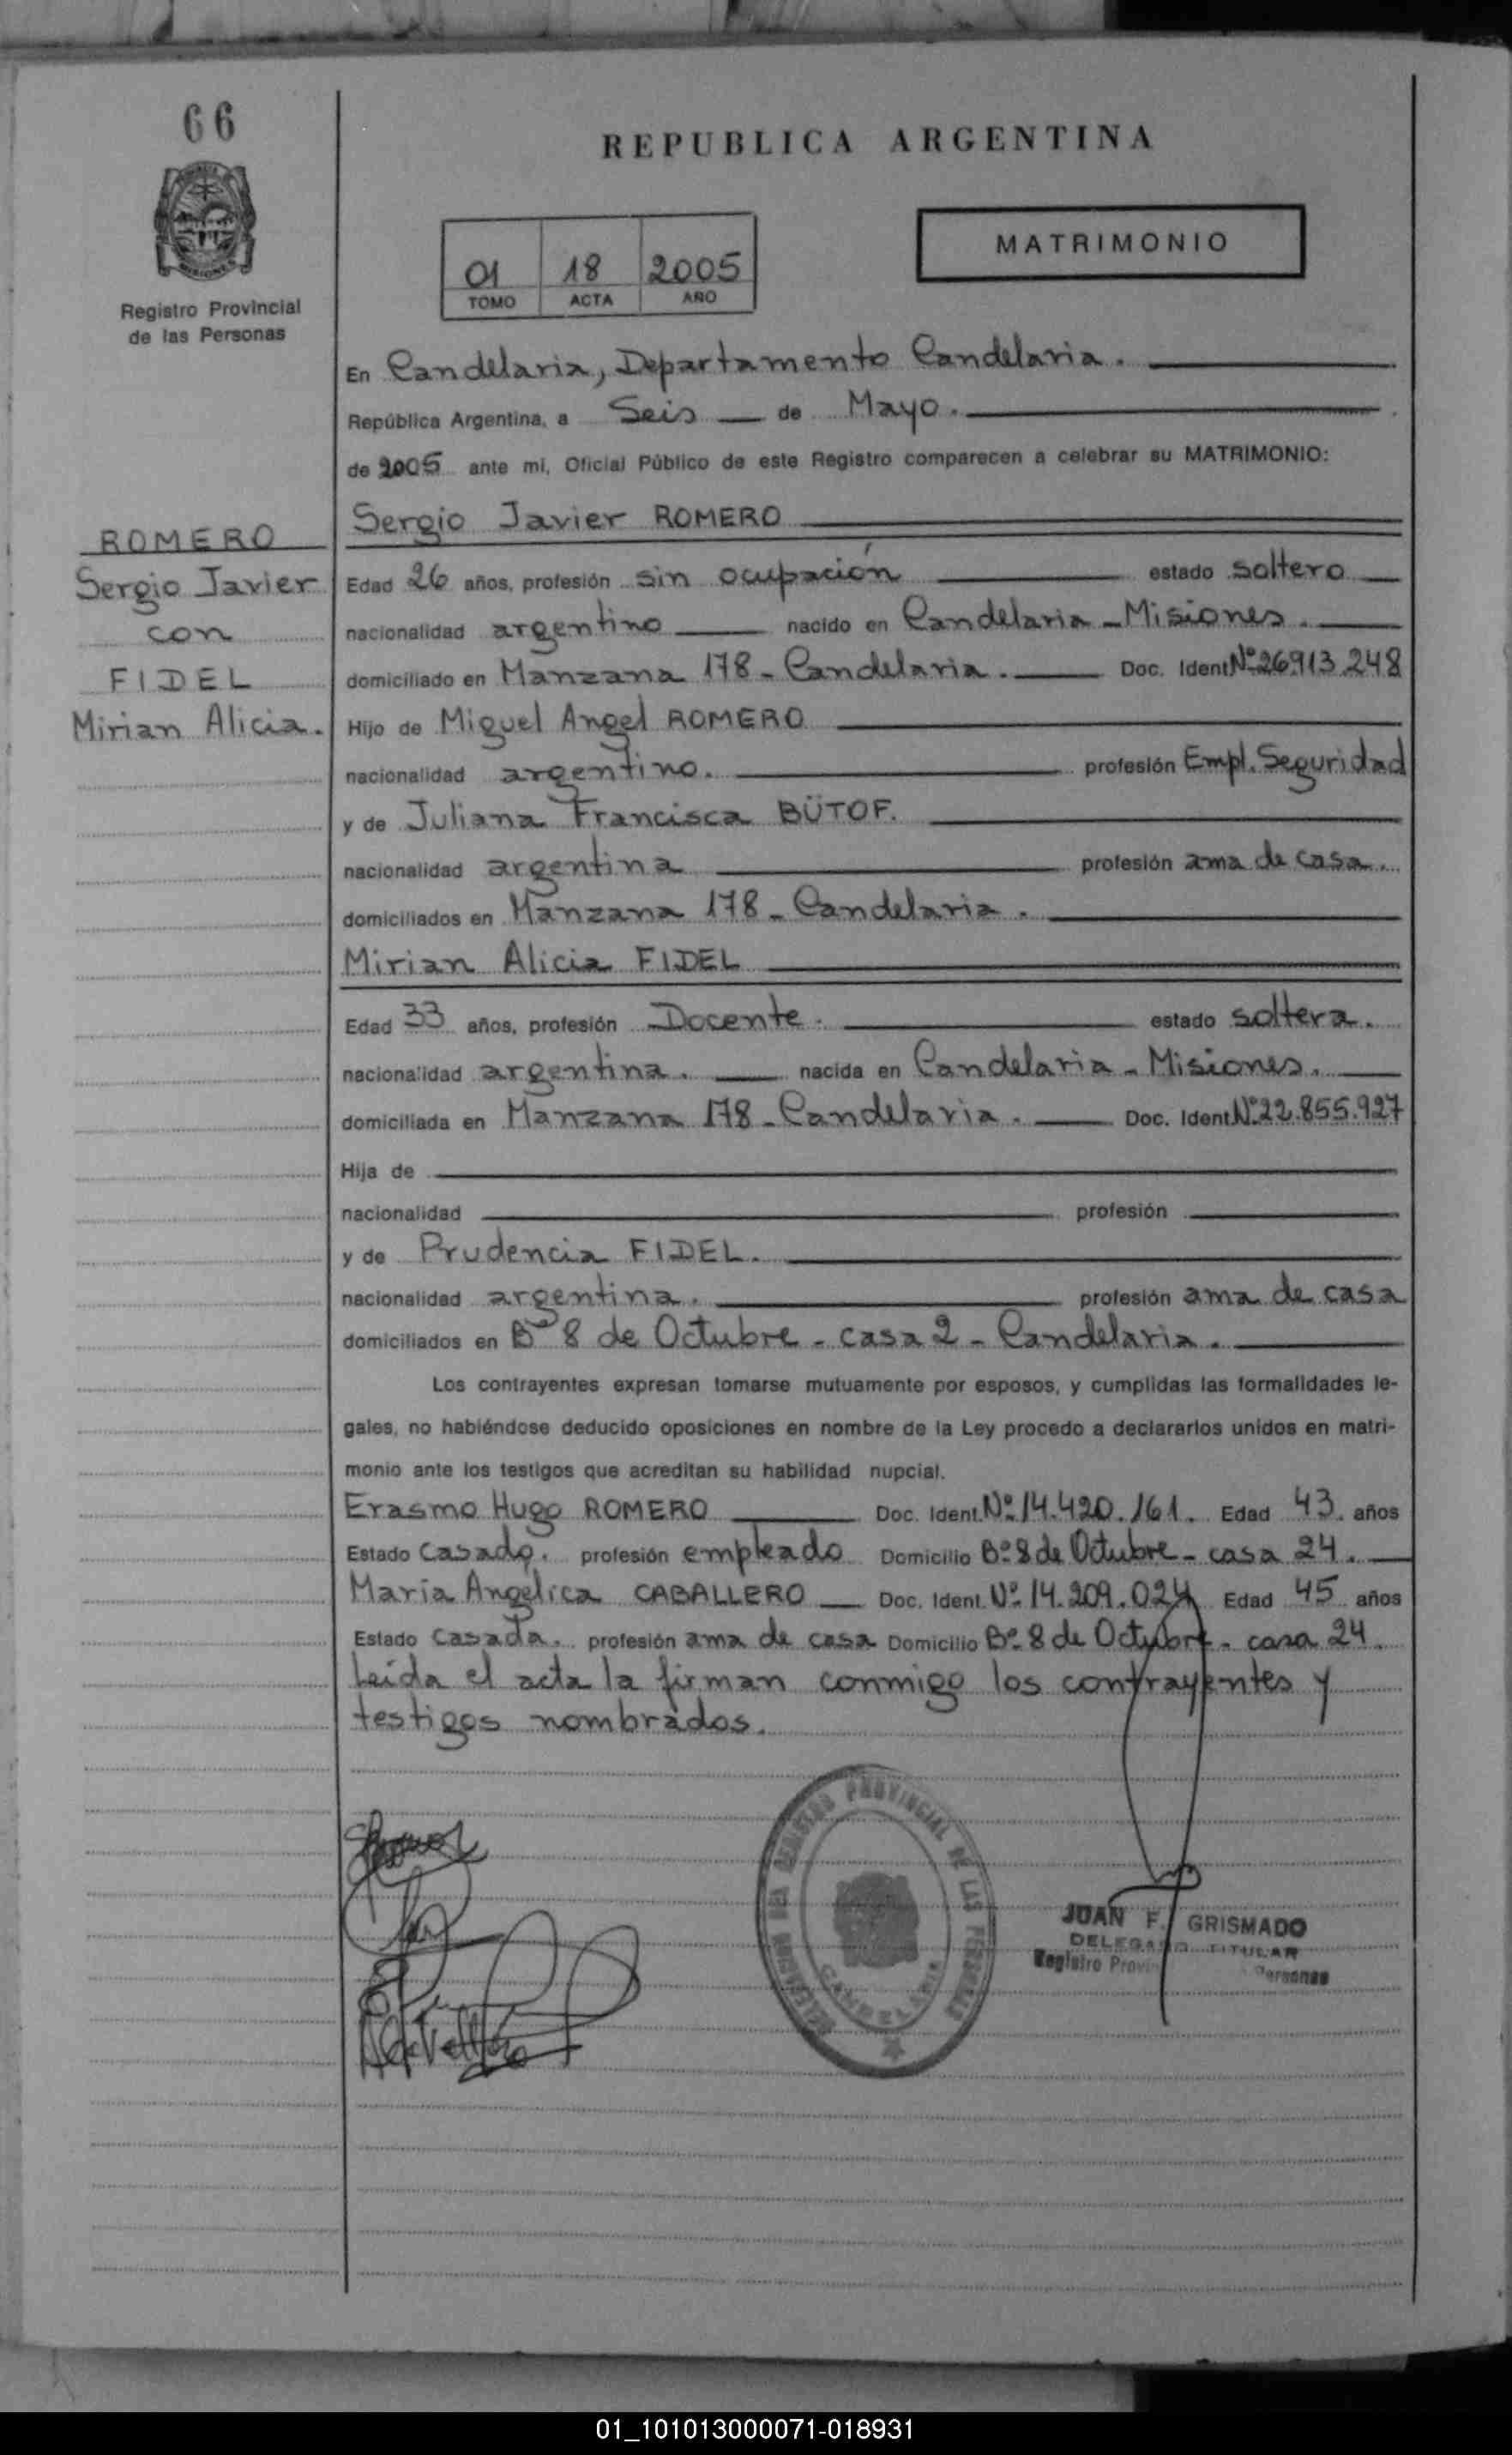 66
REPUBLICA ARGENTINA
MATRIMONIO
01 18 2005
TOMO ACTA AÑO
Registro Provincial
de las Personas
En Candelaria, Departamento Candelaria.
República Argentina, a Seis de Mayo.
de 2005 ante mí, Oficial Público de este Registro comparecen a celebrar su MATRIMONIO:
ROMERO
Sergio Javier
con
FIDEL
Mirian Alicia.
Sergio Javier ROMERO
Edad 26 años, profesión sin ocupación estado soltero
nacionalidad argentino nacido en Candelaria - Misiones.
domiciliado en Manzana 178 - Candelaria. Doc. Ident. Nº 26.913.248
Hijo de Miguel Angel ROMERO
nacionalidad argentino. profesión Empl. Seguridad
y de Juliana Francisca BÜTOF.
nacionalidad argentina profesión ama de casa.
domiciliados en Manzana 178 - Candelaria.
Mirian Alicia FIDEL
Edad 33 años, profesión Docente. estado soltera.
nacionalidad argentina. nacida en Candelaria - Misiones.
domiciliada en Manzana 178 - Candelaria. Doc. Ident. Nº 22.855.927
Hija de
nacionalidad profesión
y de Prudencia FIDEL.
nacionalidad argentina. profesión ama de casa
domiciliados en Bº 8 de Octubre - casa 2 - Candelaria.
Los contrayentes expresan tomarse mutuamente por esposos, y cumplidas las formalidades le-
gales, no habiéndose deducido oposiciones en nombre de la Ley procedo a declararlos unidos en matri-
monio ante los testigos que acreditan su habilidad nupcial.
Erasmo Hugo ROMERO Doc. Ident. Nº 14.420.161. Edad 43. años
Estado Casado. profesión empleado Domicilio Bº 8 de Octubre - casa 24.
María Angélica CABALLERO Doc. Ident. Nº 14.209.024 Edad 45 años
Estado Casada. profesión ama de casa Domicilio Bº 8 de Octubre - casa 24.
Leída el acta la firman conmigo los contrayentes y
testigos nombrados.
PROVINCIAL DE LAS PERSONAS
CANDELARIA
JUAN F. GRISMADO
DELEGADO TITULAR
Registro Provin Personas
01_101013000071-018931